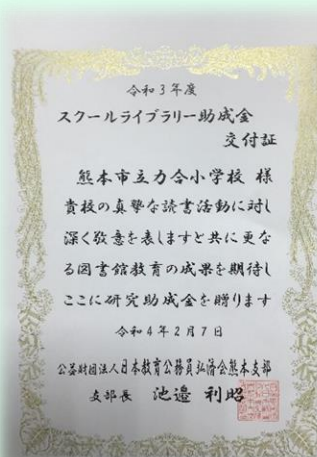 令和3年度
スクールライブラリー助成金
交付証
熊本市立力合小学校 様
貴校の真摯な読書活動に対し
深く敬意を表しますと共に更な
る図書館教育の成果を期待し
ここに研究助成金を贈ります
令和4年2月7日
公益財団法人日本教育公務員弘済会熊本支部
支部長 池邉 利昭